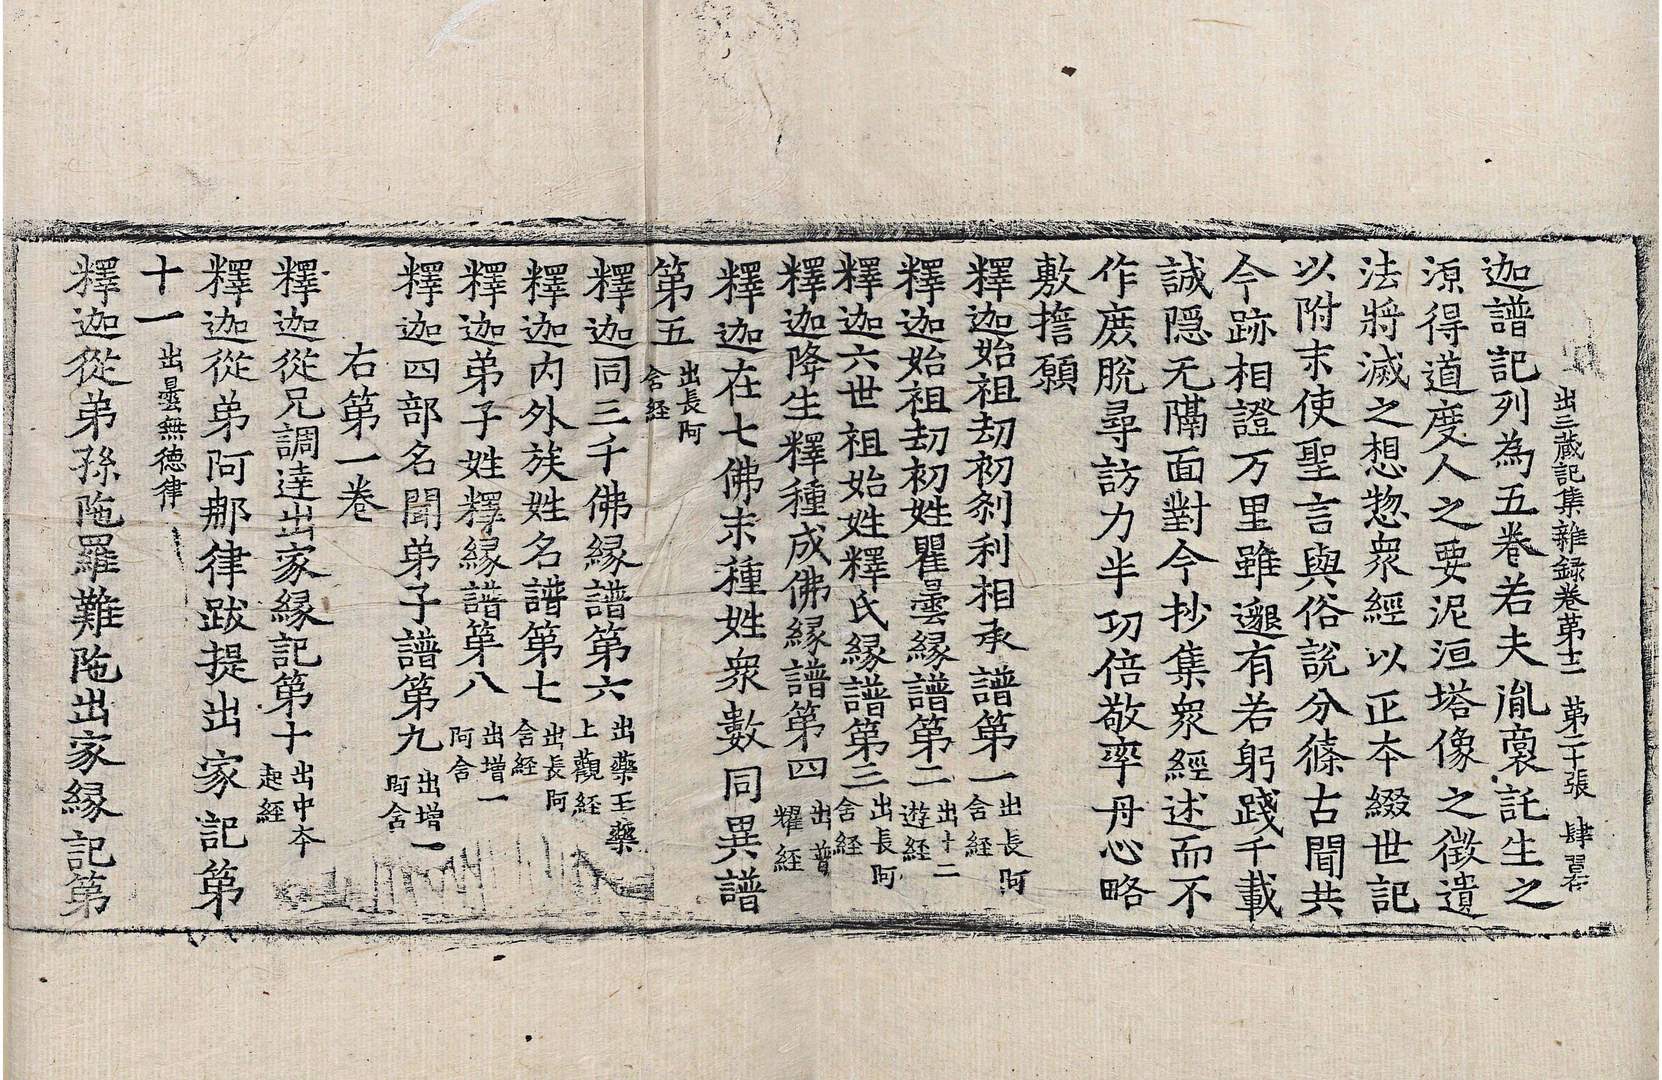 出三蔵記集雜録卷苐十二 苐二十張 肆
迦譜記列為五卷若夫胤裔託生之
源得道度人之要泥洹塔像之徴遺
法將滅之想惣衆經以正夲綴世記
以附末使聖言與俗說分條古聞共
今跡相證万里雖邈有若躬踐千載
誠隠无隔面對今抄集衆經述而不
作庻脫尋訪力半功倍敬率丹心略
敷誓願
釋迦始祖刧初刹利相承譜第一出長阿含經
釋迦始祖刧初姓瞿曇緣譜第二出十二遊經
釋迦六世祖始姓釋氏緣譜第三出長阿含經
釋迦降生釋種成佛緣譜第四出普耀經
釋迦在七佛末種姓衆數同異譜
第五出長阿含經
釋迦同三千佛緣譜第六出藥王藥上觀經
釋迦内外族姓名譜第七出長阿含經
釋迦弟子姓釋緣譜第八出増一阿含
釋迦四部名聞弟子譜第九出増一阿含
右第一卷
釋迦從兄調達出家緣記第十出中夲起經
釋迦從弟阿那律跋提出家記第
十一出曇無德律
釋迦從弟孫陁羅難陁出家緣記第